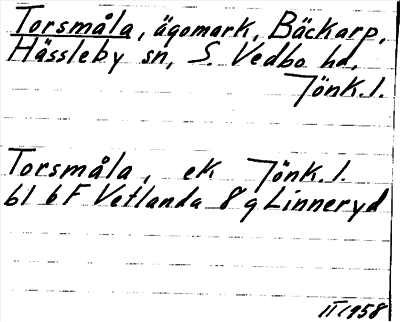 Torsmåla, ägomark, Bäckarp,
Hässleby sn, S. Vedbo hd,
Jönk. l.
Torsmåla, ek Jönk. l.
bl 6F Vetlanda 8 g Linneryd
II 1958